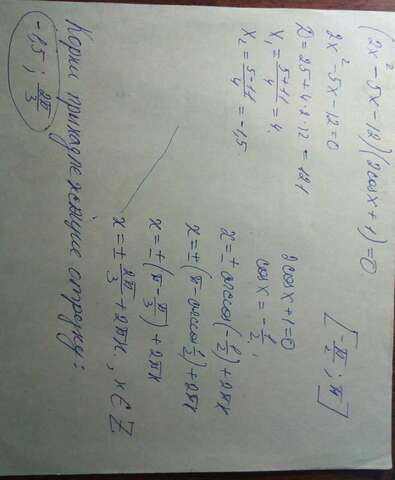 (2x² - 5x - 12)(2cosx + 1) = 0
[-π/2 ; π]
2x² - 5x - 12 = 0
D = 25 + 4·2·12 = 121
x₁ = (5+11)/4 = 4
x₂ = (5-11)/4 = -1,5
2cosx + 1 = 0
cosx = -1/2;
x = ± arccos(-1/2) + 2πк
x = ± (π - arccos 1/2) + 2πк
x = ± (π - π/3) + 2πк
x = ± 2π/3 + 2πк, к ∈ Z
Корни принадлежащие отрезку:
-1,5 ; 2π/3